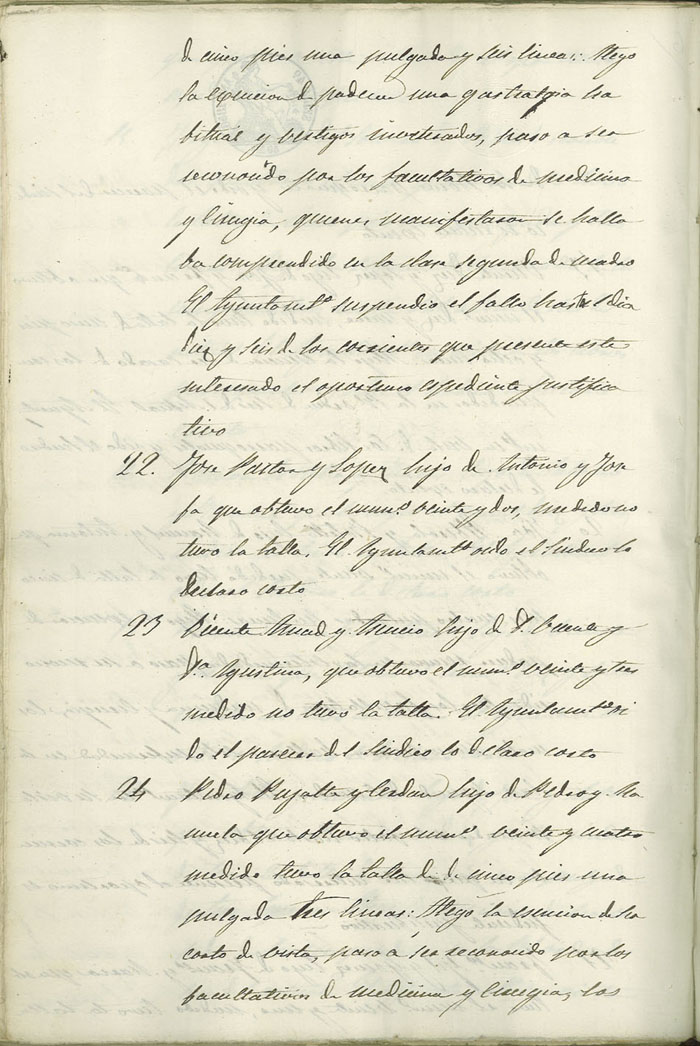 de cinco pies una pulgada y seis lineas: Alego
la esencion de padecer una gastralgia ha
bitual y vestigos inveterados, paso a ser
reconocido por los facultativos de medicina
y Cirugia, quienes manifestaron se halla
ba comprendido en la clase segunda de
El Ayuntamto suspendio el fallo hasta el dia
diez y seis de los corrientes que presente este
interesado el oportuno espediente justifica
tivo
22. Jose Pastor y Lopez hijo de Antonio y Jose
fa que obtuvo el numo veinte y dos, medido no
tuvo la talla. El Ayuntamto oido el Sindico lo
declaro corto
23 Vicente y hijo de Dn Vicente y
Da Agustina, que obtuvo el numo veinte y tres
medido no tuvo la talla. El Ayuntamto oi
do el parecer del Sindico lo declaro corto
24 Pedro Pujalte y Cerdan hijo de Pedro y Ma
nuela que obtuvo el numo veinte y cuatro
medido tuvo la talla de cinco pies una
pulgada tres lineas: Alego la esencion de ser
corto de vista, paso a ser reconocido por los
facultativos de medicina y Cirugia, los